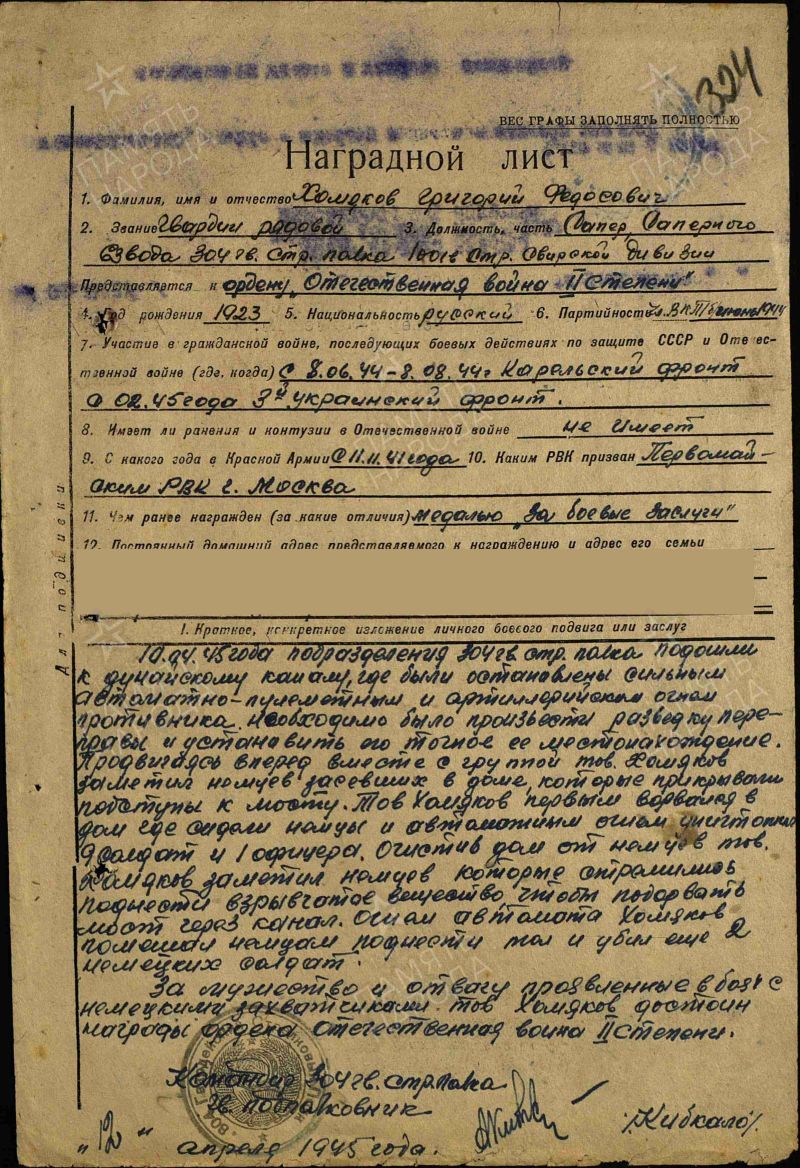 324
ВСЕ ГРАФЫ ЗАПОЛНЯТЬ ПОЛНОСТЬЮ
Наградной лист
1. Фамилия, имя и отчество Хомяков Григорий Федосович
2. Звание Гвардии рядовой 3. Должность, часть Сапер, Саперного
взвода 304 гв. стр. полка 100 гв стр. Свирской дивизии
Представляется к ордену „Отечественная война II Степени"
4. Год рождения 1923 5. Национальность русский 6. Партийность чл. ВКП(б) июнь 1944
7. Участие в гражданской войне, последующих боевых действиях по защите СССР и Отечес-
твенной войне (где, когда) С 8.06.44-8.08.44г Карельский фронт
С 02.45 года 3й украинский фронт.
8. Имеет ли ранения и контузии в Отечественной войне не имеет
9. С какого года в Красной Армии С 11.11.41 года 10. Каким РВК призван Первомай-
ским РВК г. Москва
11. Чем ранее награжден (за какие отличия) медалью „За боевые заслуги"
12. Постоянный домашний адрес представляемого к награждению и адрес его семьи
Для подписки
I. Краткое, конкретное изложение личного боевого подвига или заслуг
10.04.45 года подразделения 304 гв. стр. полка подошли
к дунайскому каналу, где были остановлены сильным
автоматно-пулеметным и артиллерийским огнем
противника. Необходимо было произвести разведку пере-
правы и установить его точное ее местонахождение.
Продвигаясь вперед вместе с группой тов. Хомяков
заметил немцев засевших в доме, которые прикрывали
подступы к мосту. Тов Хомяков первым ворвался в
дом где сидели немцы и автоматным огнем уничтожил
9 солдат и 1 офицера. Очистив дом от немцев тов.
Хомяков заметил немцев которые стремились
поднести взрывчатое вещество чтобы подорвать
мост через канал. Огнем автомата Хомяков
помешал немцам поднести тол и убил еще 2
немецких солдат.
За мужество и отвагу проявленные в боях с
немецкими захватчиками тов Хомяков достоин
награды ордена Отечественная война II Степени.
Командир 304 гв. стр. полка
гв. подполковник /Кибкало/.
„12" апреля 1945 года.
ПАМЯТЬ НАРОДА